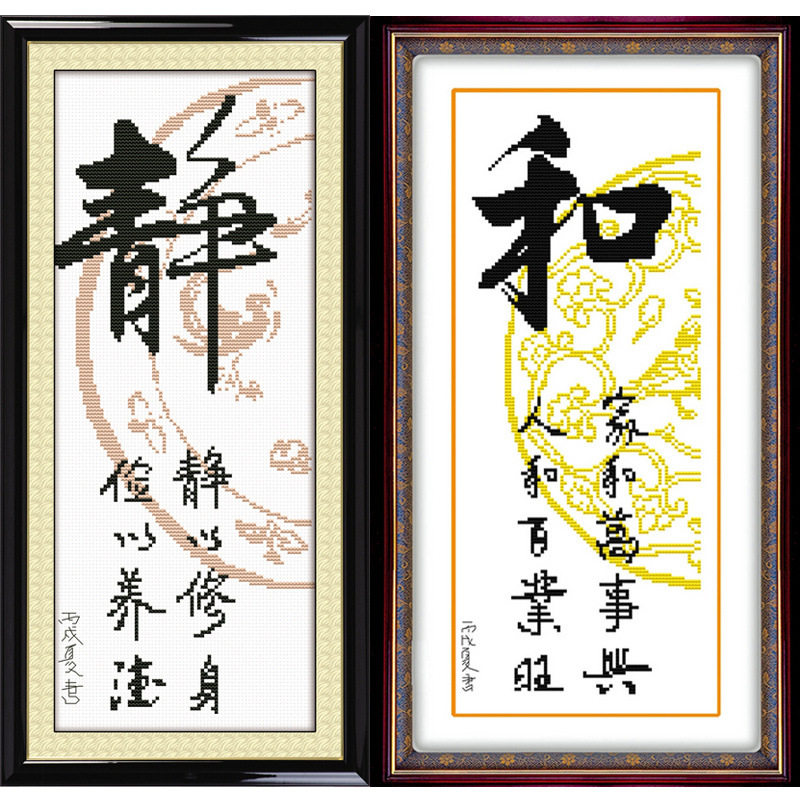 静
静以修身
俭以养德
丙戌夏書
和
家和萬事興
人和百業旺
丙戌夏書